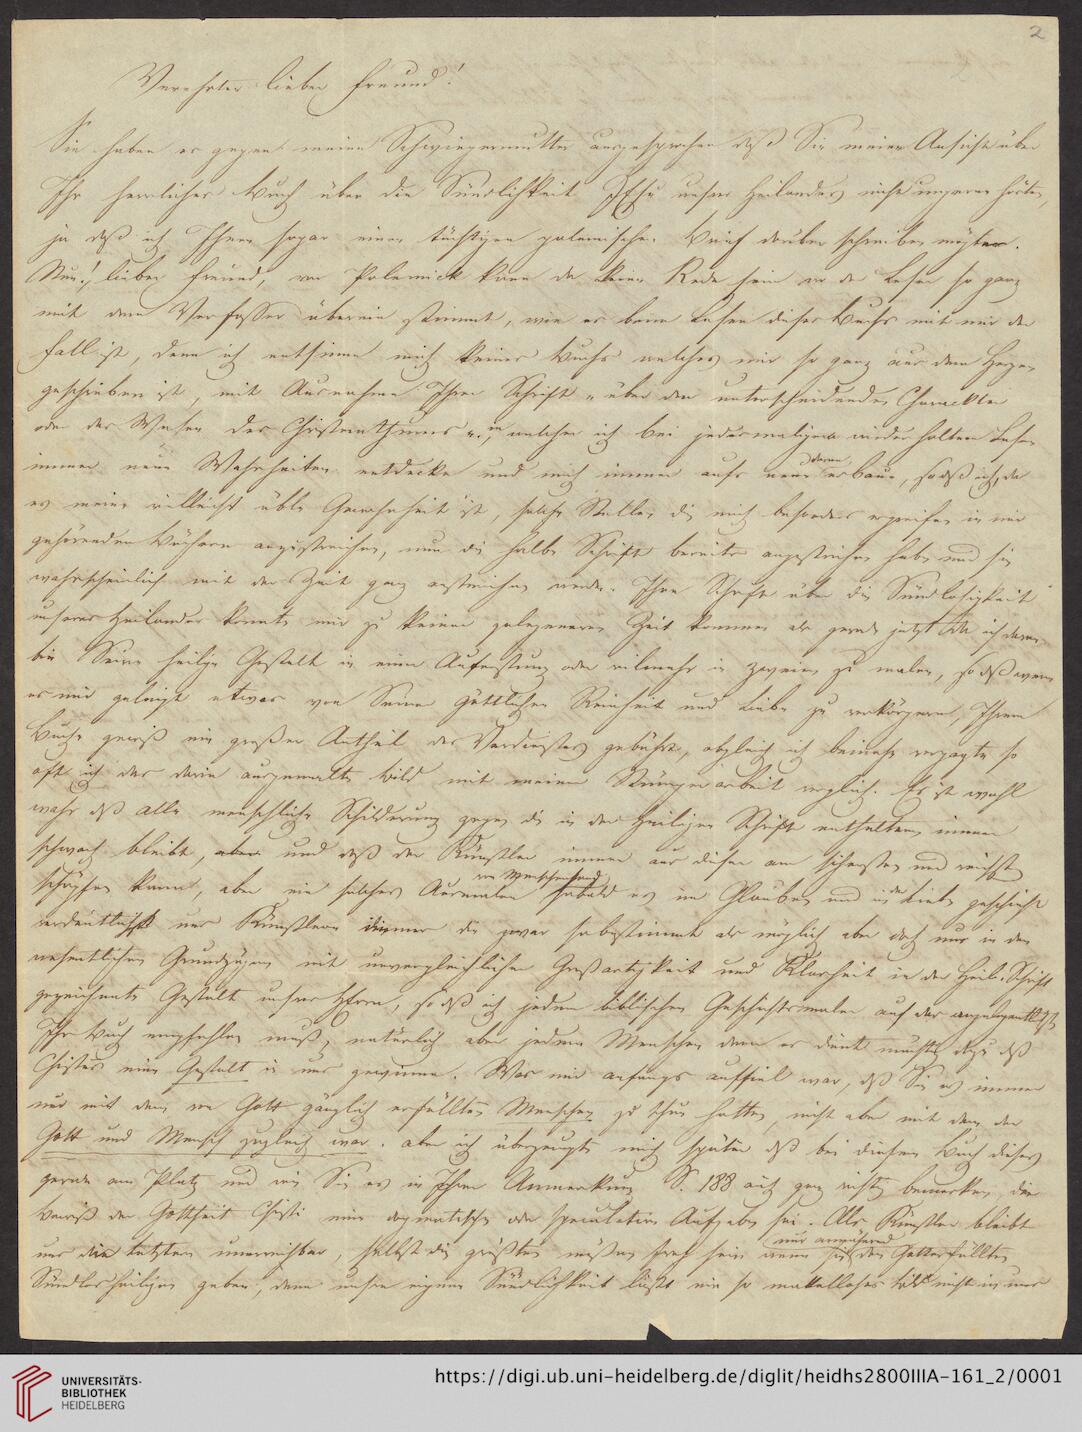 2
Verehrter lieber Freund!
Sie haben es gegen meine Schwiegermutter ausgesprochen daß Sie meine Ansicht über
Ihr herrliches Buch über die Sündlosigkeit JEsu unsers Heilandes nicht ungerne hörten,
ja daß ich Ihnen sogar einen tüchtigen polemischen Brief darüber schreiben möchte.
Nun! lieber Freund, von Polemick kann da keine Rede sein wo der Leser so ganz
mit dem Verfasser überein stimmt, wie es beim Lesen dieses Buchs mit mir der
Fall ist, denn ich entsinne mich keines Buchs welches mir so ganz aus dem Herzen
geschrieben ist, mit Ausnahme Ihrer Schrift „über den unterscheidenden Charackter
oder das Wesen des Christenthums“, in welcher ich bei jedesmaligem wiederholten Lesen
immer neue Wahrheiten entdecke und mich immer aufs neue daran erbaue, so daß ich, da
es meine vielleicht üble Gewohnheit ist, solche Stellen die mich besonders ergreifen in mir
gehörenden Büchern anzustreichen, nun die halbe Schrift bereits angestrichen habe und sie
wahrscheinlich mit der Zeit ganz anstreichen werde. Ihre Schrift über die Sündlosigkeit
unseres Heilandes konnte mir zu keiner gelegeneren Zeit kommen als gerade jetzt da ich daran
bin Seine heilige Gestalt in einer Auferstehung oder vielmehr in zweien zu malen, so daß wenn
es mir gelingt etwas von Seiner göttlichen Reinheit und Liebe zu verkörpern, Ihrem
Buche gewiß ein großer Antheil des Verdienstes gebührt, obgleich ich beinahe verzagte so
oft ich das darin ausgemalte Bild mit meiner Stümperarbeit verglich. Es ist wohl
wahr daß alle menschliche Schilderung gegen die in der Heiligen Schrift enthaltene immer
schwach bleibt, und daß der Künstler immer aus dieser am sichersten und reichsten
schöpfen kann, aber ein solches Ausmalen von Menschenhand sobald es im Glauben und in der Liebe geschieht
verdeutlicht uns Künstlern immer die zwar so bestimmt als möglich aber doch nur in den
wesentlichen Grundzügen mit unvergleichlicher Großartigkeit und Klarheit in der Heil. Schrift
gezeichnete Gestalt unsers HErrn, so daß ich jedem biblischen Geschichtsmaler auf das angelegentlichste
Ihr Buch empfehlen muß, natürlich aber jedem Menschen denn es dient mächtig dazu daß
Christus eine Gestalt in uns gewinne. Was mir anfangs auffiel war, daß Sie es immer
nur mit dem von Gott gänzlich erfüllten Menschen zu thun hatten, nicht aber mit dem der
Gott und Mensch zugleich war. aber ich überzeugte mich später daß bei diesem Buch dieses
gerade am Platz und wie Sie es in Ihrer Anmerkung S. 188 auch ganz richtig bemerken, der
Beweis der Gottheit Christi eine dogmatische oder speculative Aufgabe sei. Als Künstler bleibt
uns die letztere unerreichbar, selbst die größten müssen froh sein wenn sie nur annähernd den Gotterfüllten
Sündlosheiligen geben, denn unsre eigene Sündlichkeit läßt ein so makelloses Bild nicht in uns
UNIVERSITÄTS-
BIBLIOTHEK
HEIDELBERG
https://digi.ub.uni-heidelberg.de/diglit/heidhs2800IIIA-161_2/0001